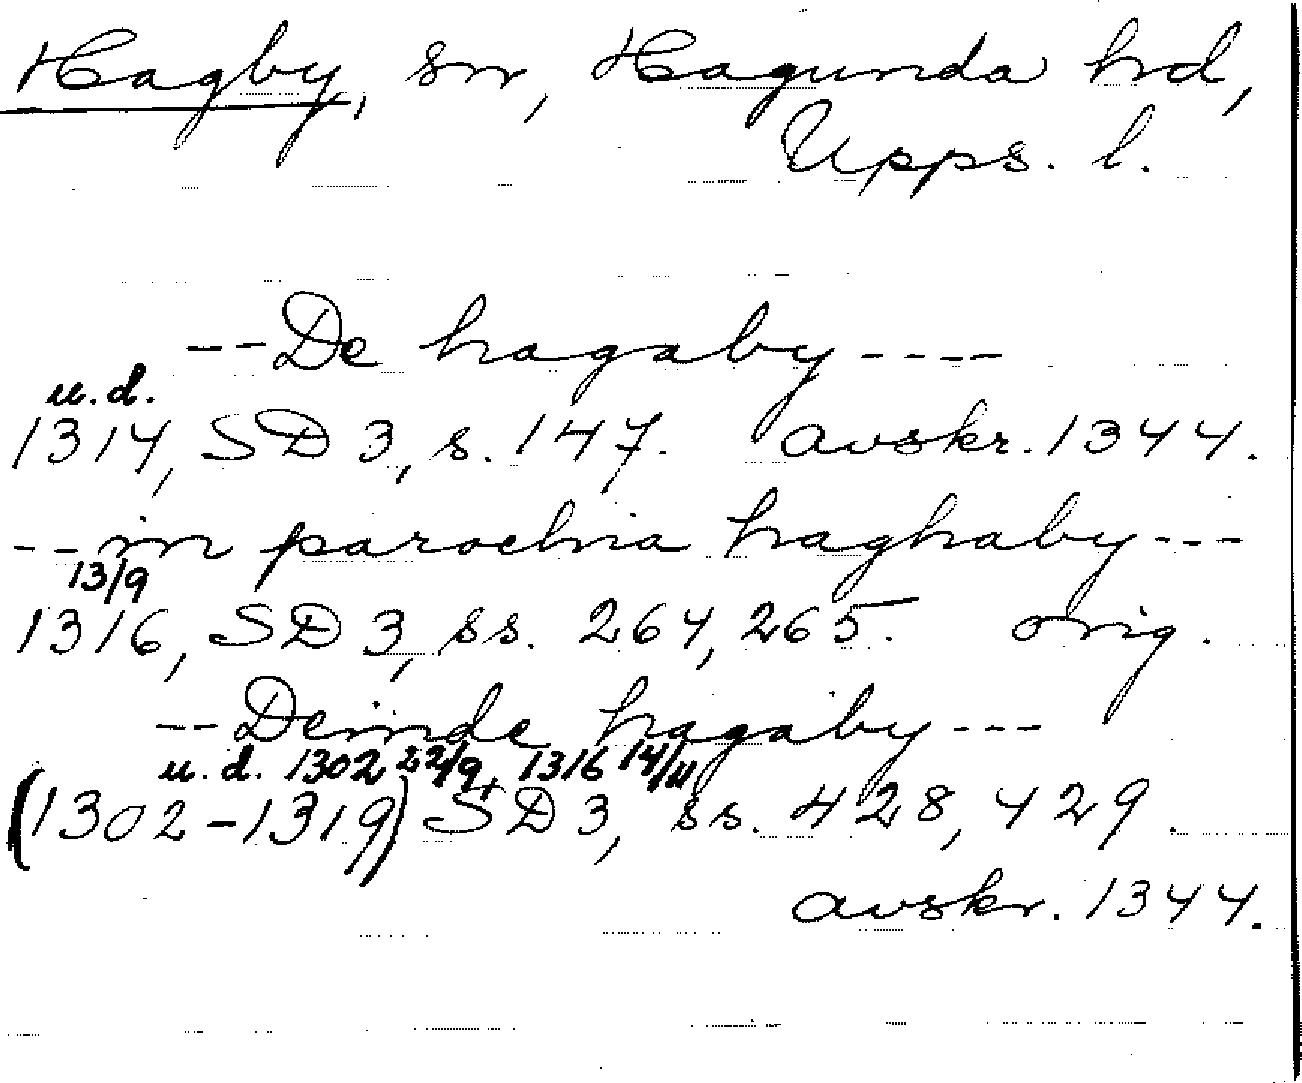 Hagby, sn, Hagunda hrd,
Upps. l.
-- De hagaby ----
u. d.
1314, SD 3, s. 147. avskr. 1344.
-- in parochia haghaby ---
13/9
1316, SD 3, ss. 264, 265. orig.
-- Deinde hagaby ---
u. d. 1302 22/9, 1316 14/11
(1302-1319) SD 3, ss. 428, 429.
avskr. 1344.